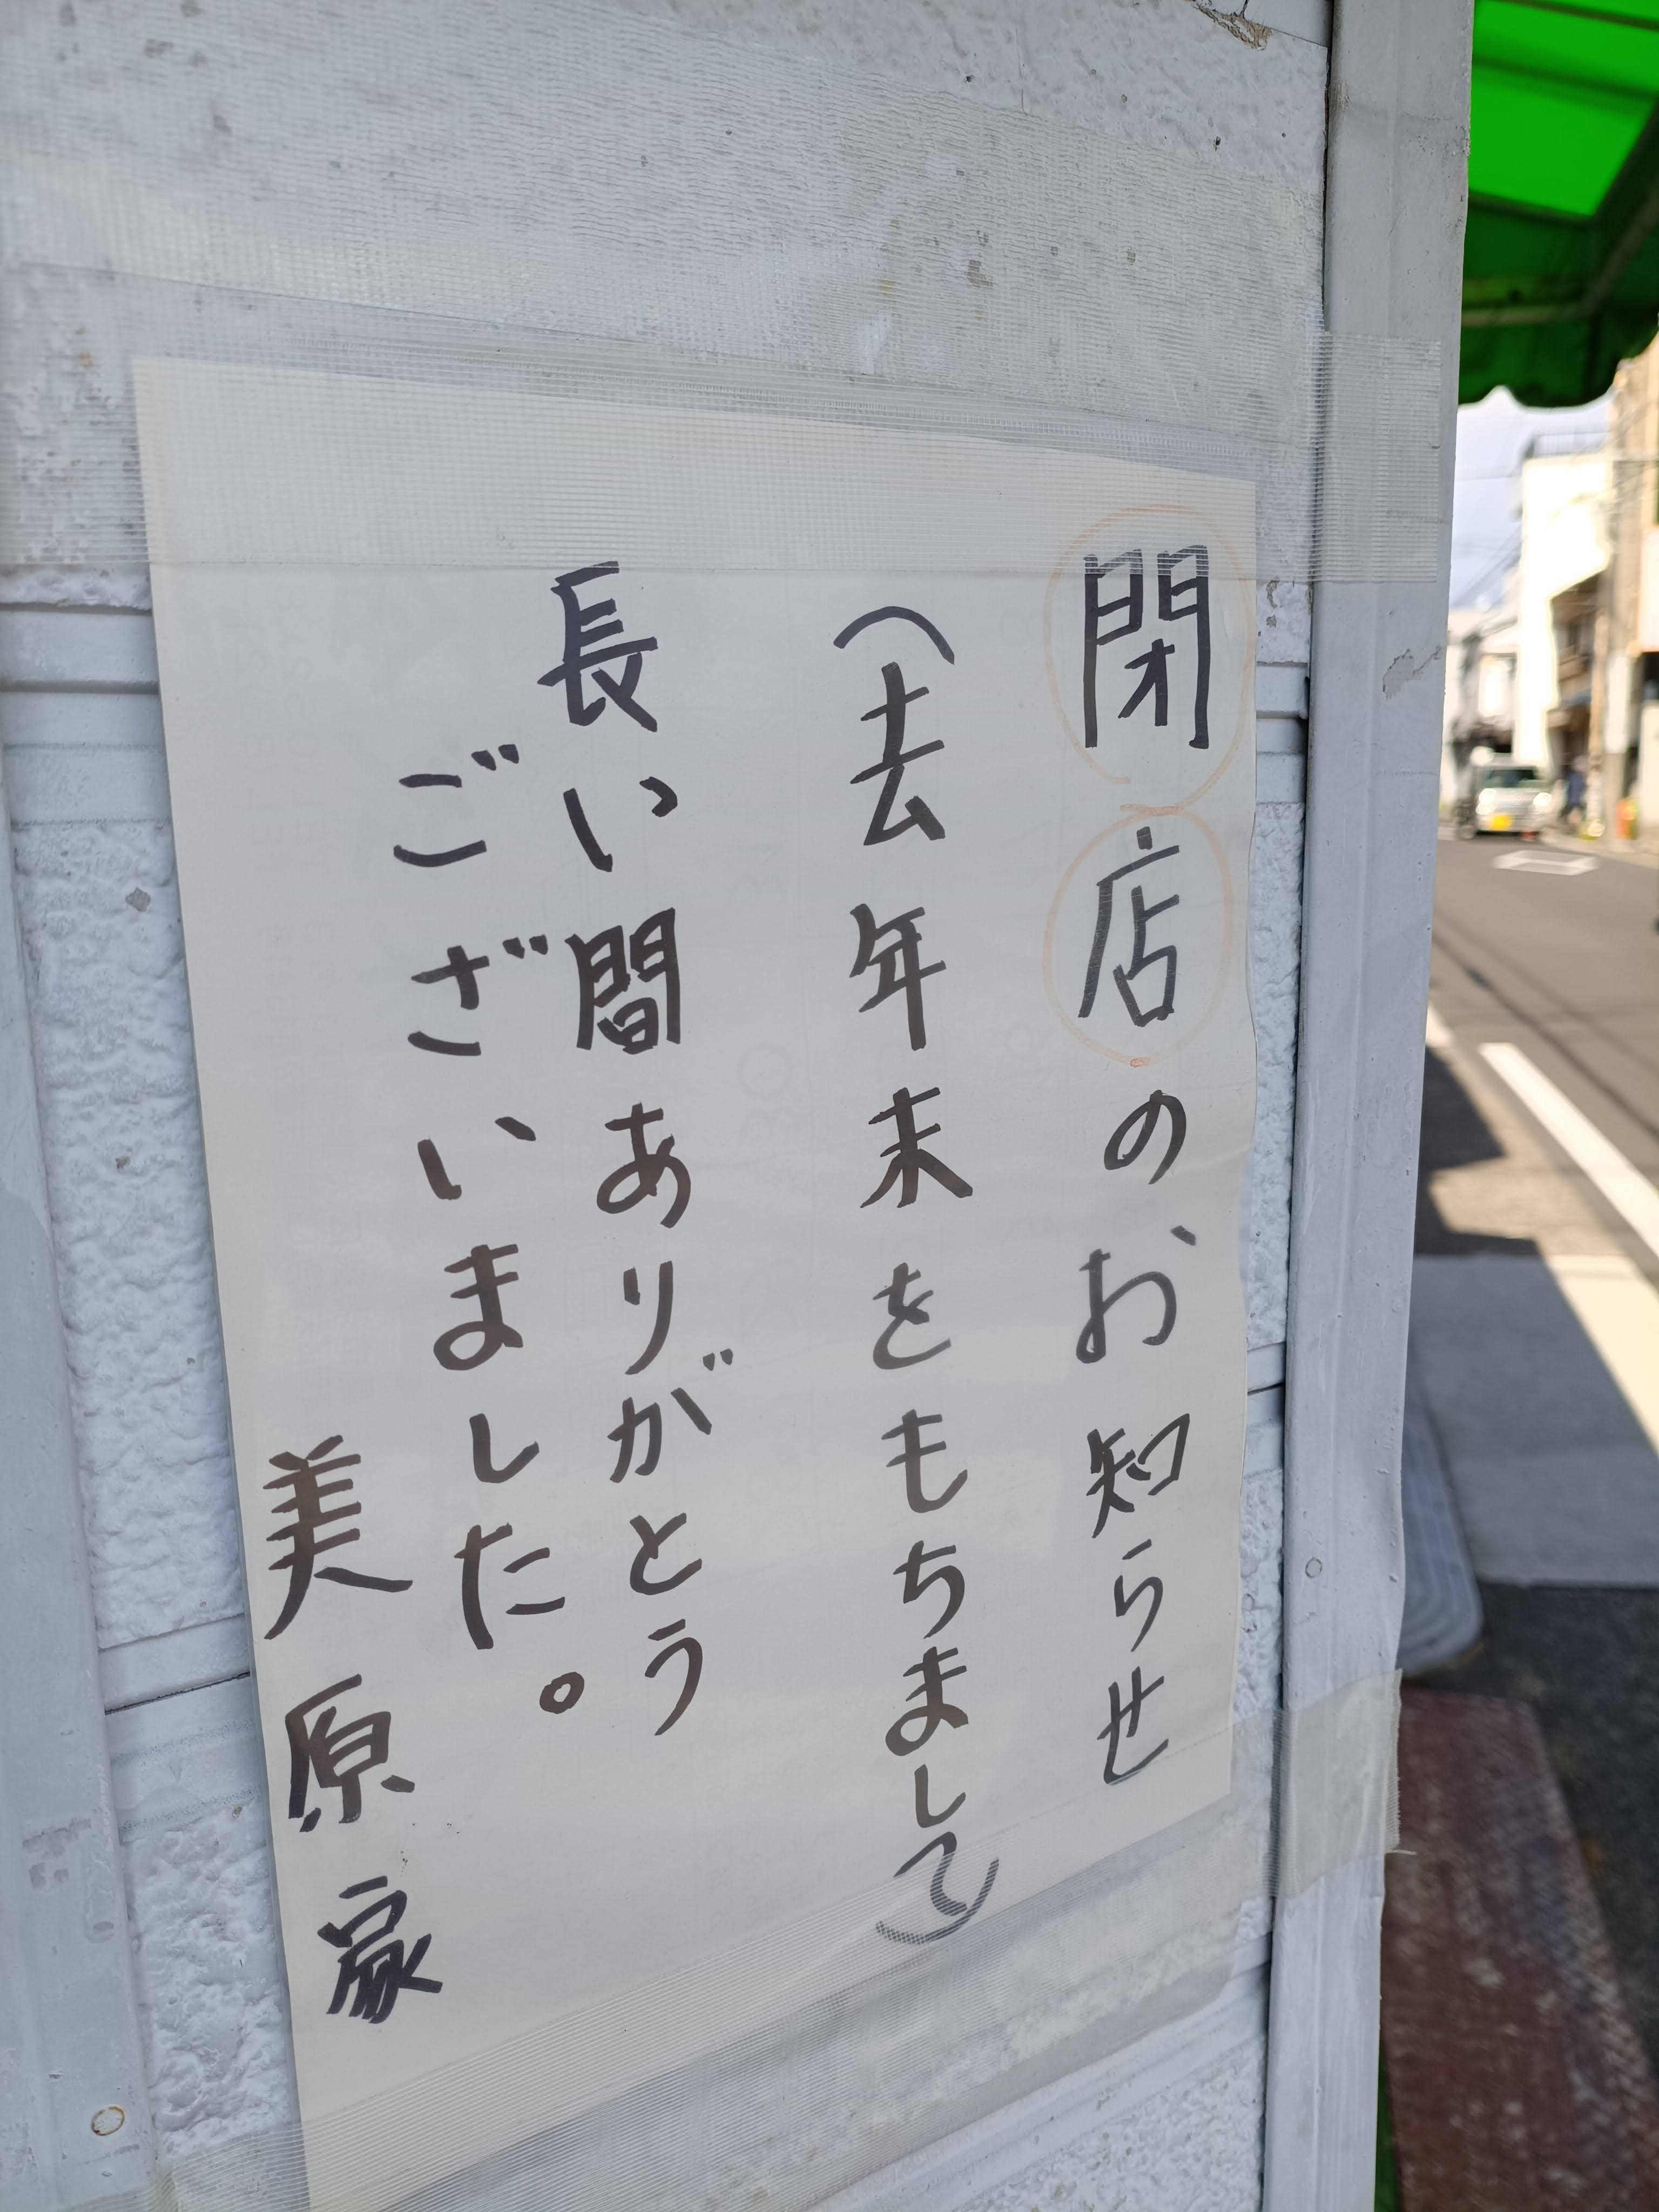 閉店のお知らせ
(去年末をもちまして)
長い間ありがとう
ございました。
美原家